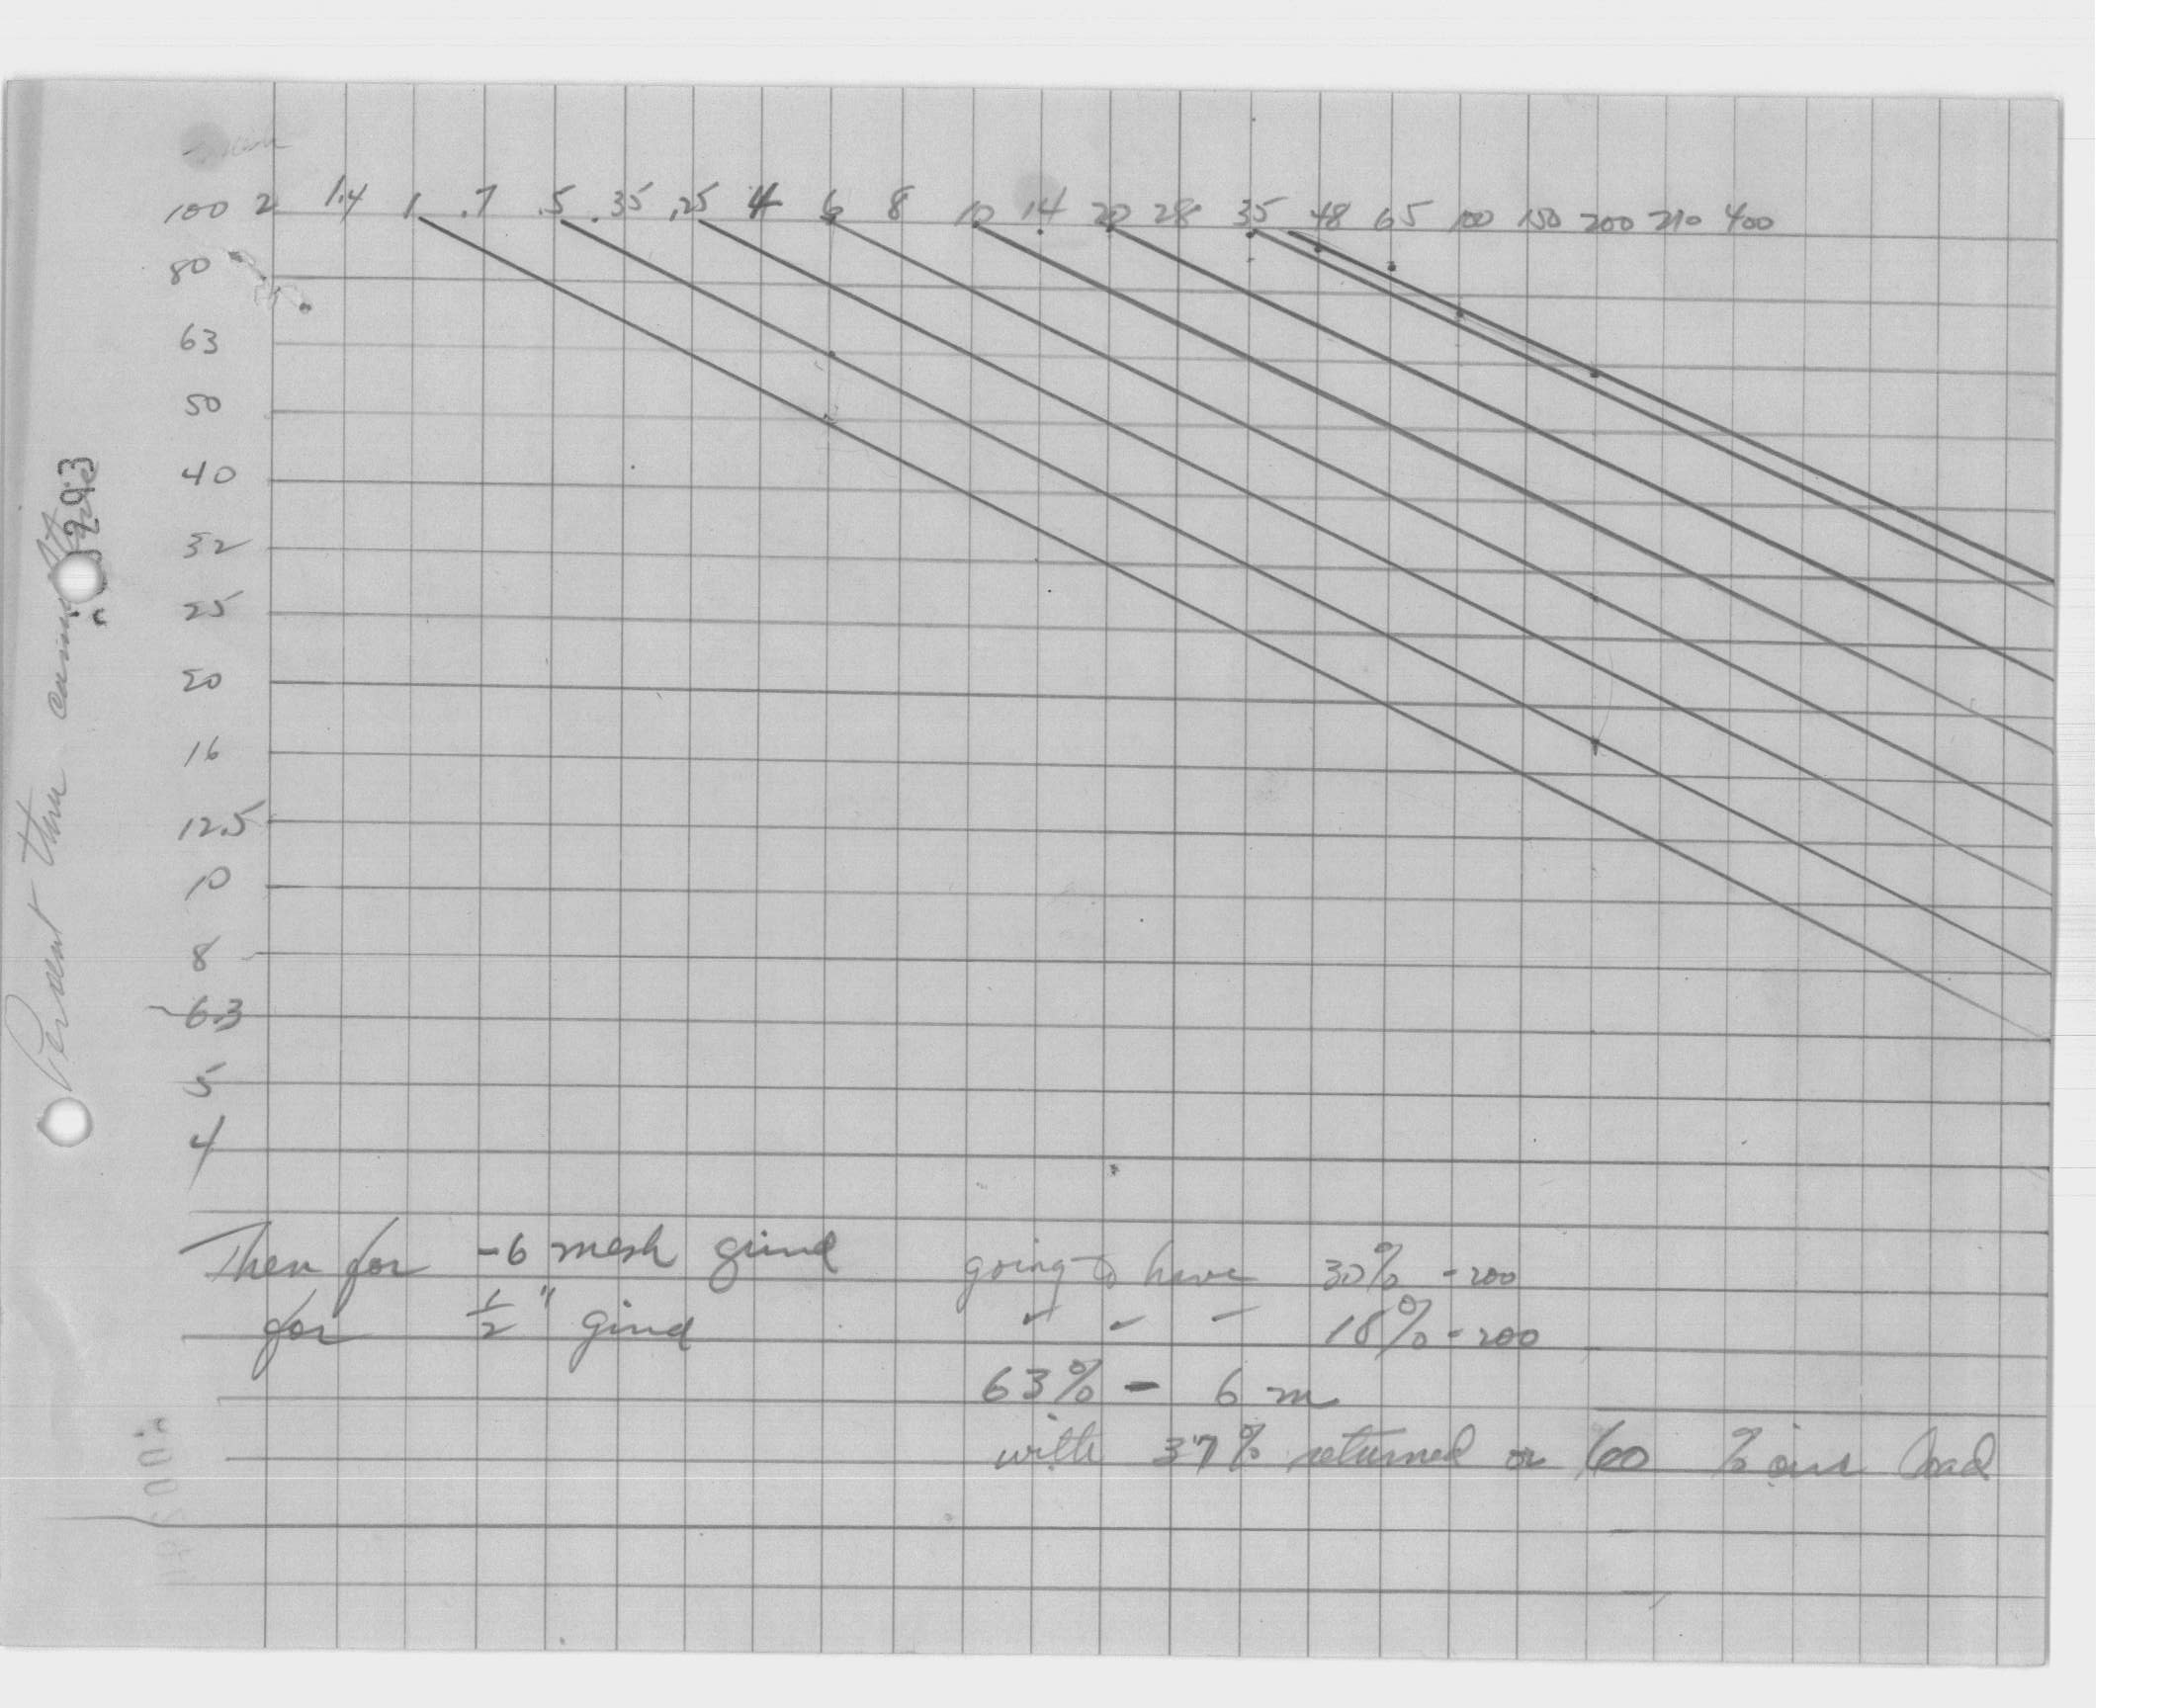 100 2 1.4 1 .7 .5 .35 .25 4 6 8 10 14 20 28 35 48 65 100 150 200 270 400
80
63
50
40
32
25
20
16
12.5
10
8
6.3
5
4
Percent thru
Then for -6 mesh grind going to have 30% -200
for 1/2" grind " " " 18% -200
63% - 6 m
with 37% returned or 60 % circ load